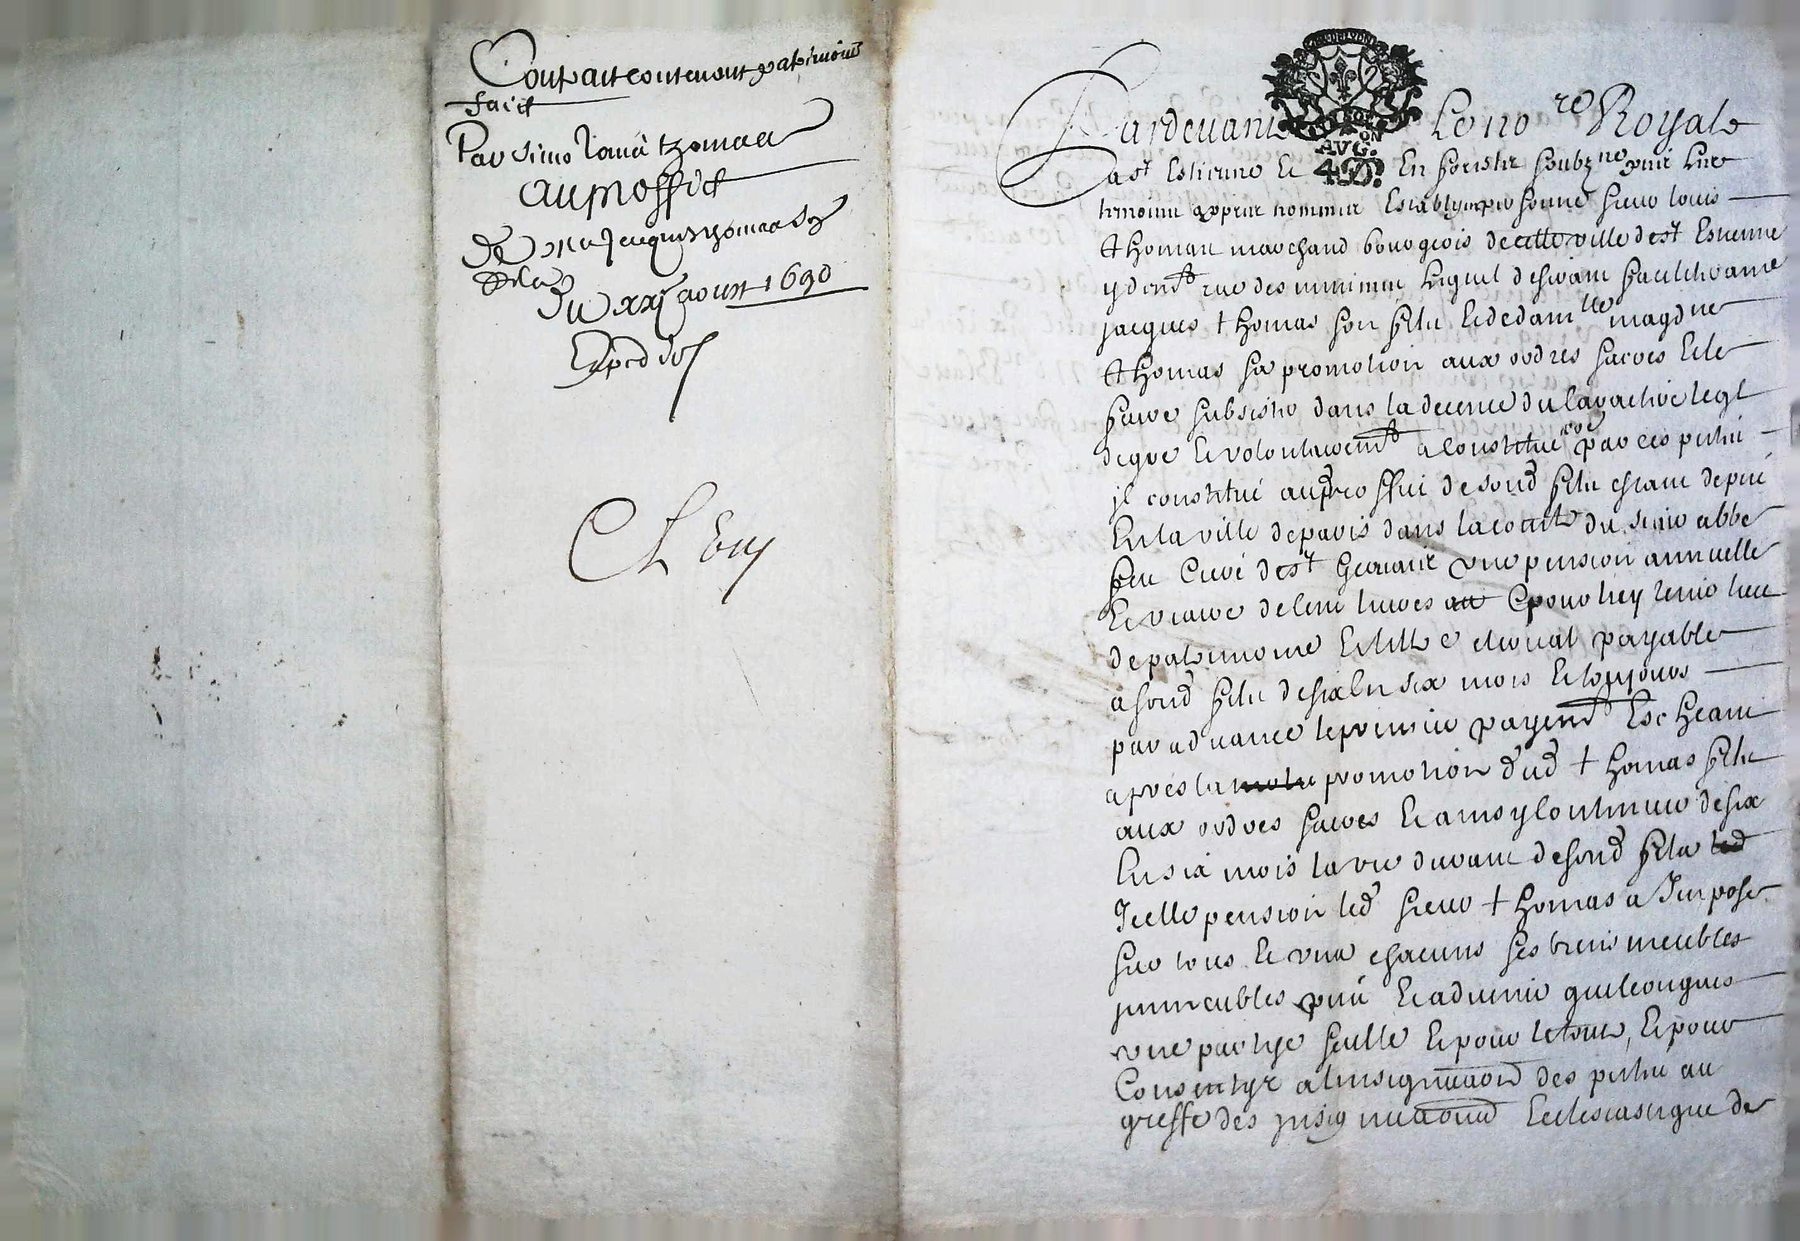 Contract contenant patrimoine
faict
Par sieur Louis thomas
au proffict
De Mre Jacques thomas son
filz
Du xxje aoust 1690
Exped
Pardevant Le nore Royal
AVG.
a st Estienne Et En forestz soubzne
tesmoins apprez nommez Estably en personne sieur Louis
thomas marchand bourgeois de cette ville de st Estienne
y demt rue des minimes Lequel desirant
Jacques thomas son filz Et de damlle magdne
thomas sa promotion aux ordres sacres Et le
faire subsister dans la decence du caractere de
degre Et volontairemt a constitué par ces pntes
il constitue au proffict de sond filz estant de pnt
En la ville de paris dans la du sieur abbé
Curé de st une pension annuelle
Et viagre de livres pour luy tenir lieu
de patrimoine Et tiltre clerical payable
a sond filz de six En six mois Et tousjours
par advance le premier payemt Escheant
apres la promotion dud thomas filz
aux ordres sacres Et ainsy continuer de six
En six mois la vie durant de sond filz
Icelle pension led sieur thomas a Imposé
sur tous Et uns chacuns ses biens meubles
immeubles pnts Et advenir quelconques
une partye seulle Et pour le tout, Et pour
Consentyr a linsignuaon des pntes au
greffe des insignuaons Eclesiastique de